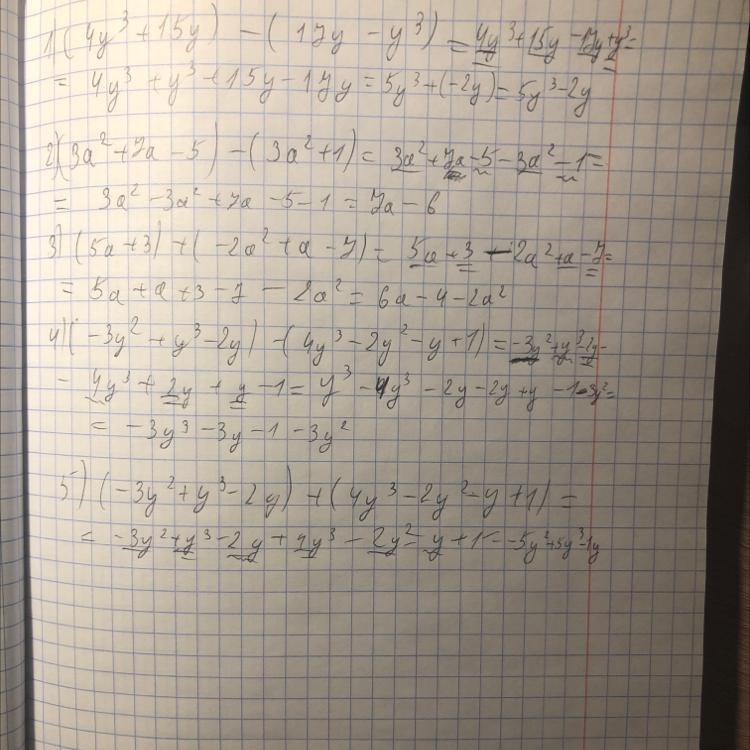 1) (4y³ + 15y) - (17y - y³) = 4y³ + 15y - 17y + y³ =
= 4y³ + y³ + 15y - 17y = 5y³ + (-2y) = 5y³ - 2y
2) (3a² + 7a - 5) - (3a² + 1) = 3a² + 7a - 5 - 3a² - 1 =
= 3a² - 3a² + 7a - 5 - 1 = 7a - 6
3) (5a + 3) + (-2a² + a - 7) = 5a + 3 - 2a² + a - 7 =
= 5a + a + 3 - 7 - 2a² = 6a - 4 - 2a²
4) (-3y² + y³ - 2y) - (4y³ - 2y² - y + 1) = -3y² + y³ - 2y -
- 4y³ + 2y + y - 1 = y³ - 4y³ - 2y - 2y + y - 1 - 3y² =
= -3y³ - 3y - 1 - 3y²
5) (-3y² + y³ - 2y) + (4y³ - 2y² - y + 1) =
= -3y² + y³ - 2y + 4y³ - 2y² - y + 1 = -5y² + 5y³ - 1y